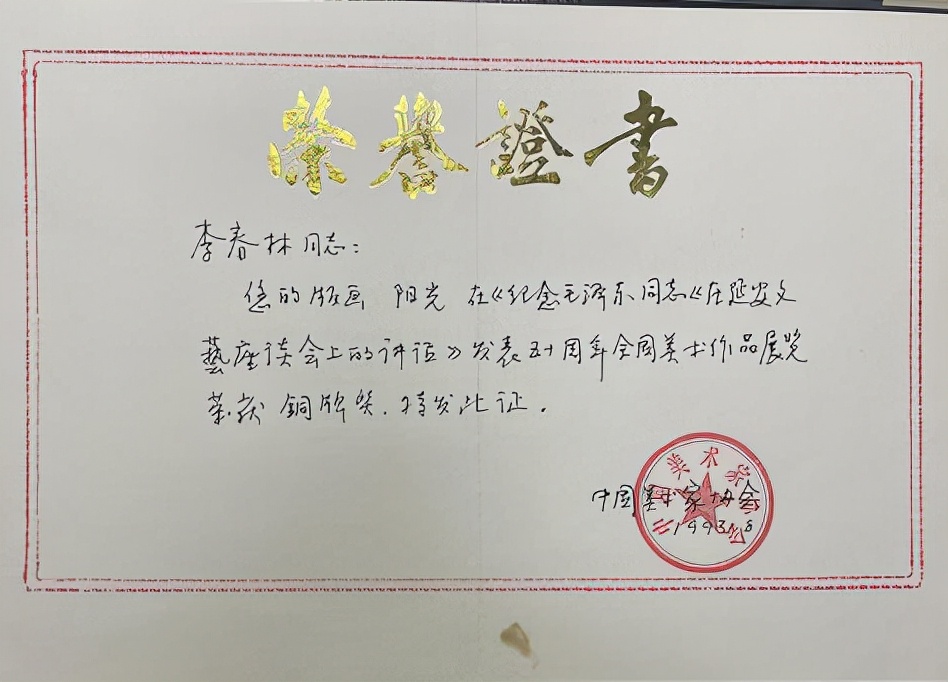 榮譽證書
李春林同志：
您的版画 阳光 在《纪念毛泽东同志《在延安文
藝座谈会上的讲话》发表五十周年全国美术作品展览
荣获 铜牌奖．特发此证．
中国美术家协会
1993.8